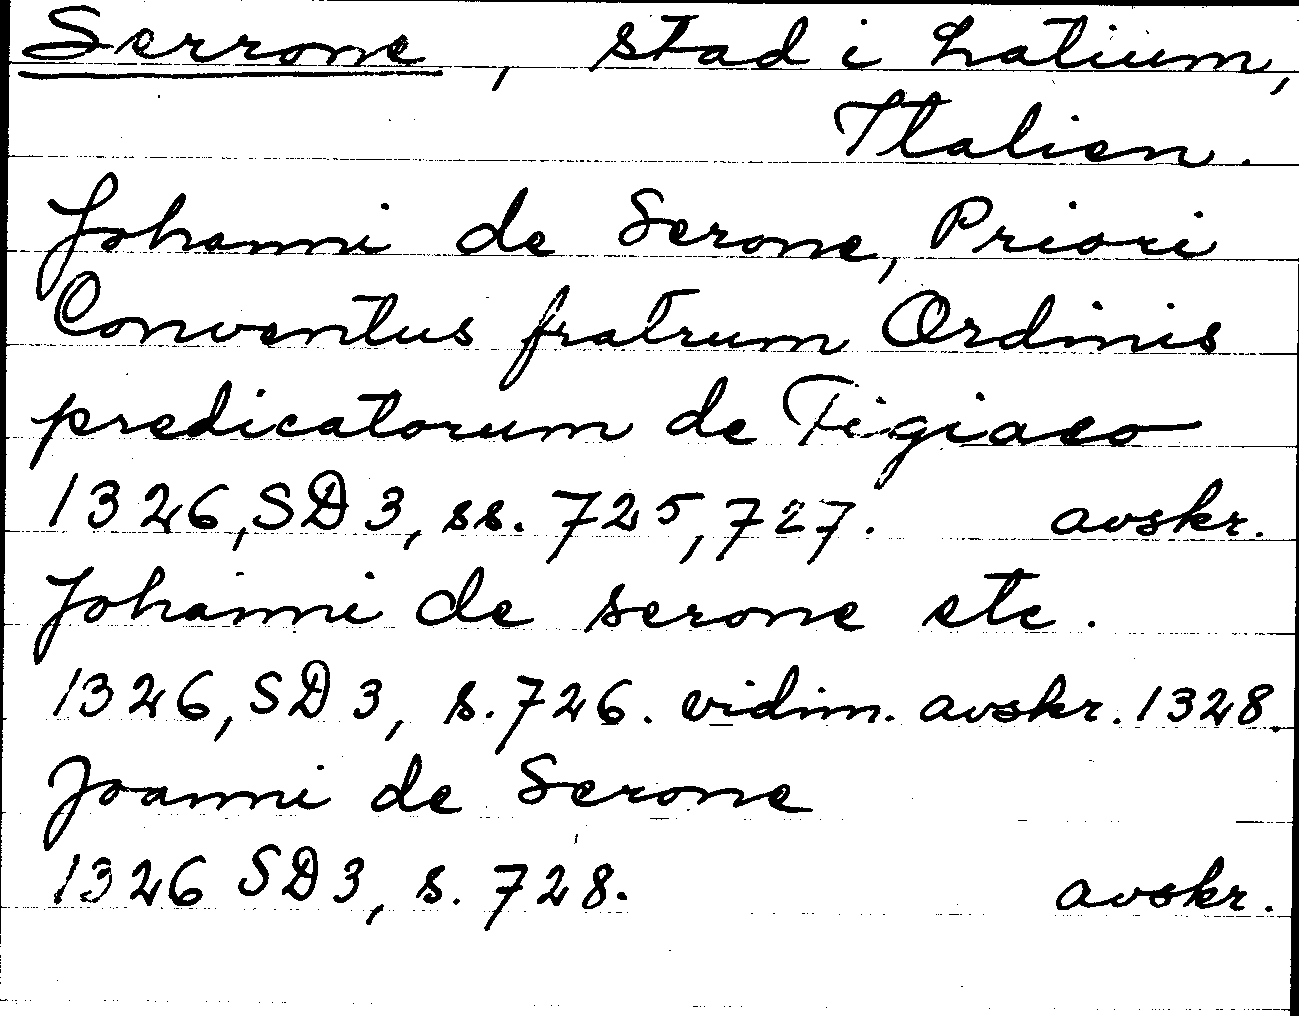 Serrone, stad i Latium,
Italien.
Johanni de Serone, Priori
Conventus fratrum Ordinis
predicatorum de Figiaco
1326, SD 3, ss. 725, 727. avskr.
Johanni de serone etc.
1326, SD 3, s. 726. vidim. avskr. 1328.
Joanni de Serone
1326 SD 3, s. 728. avskr.